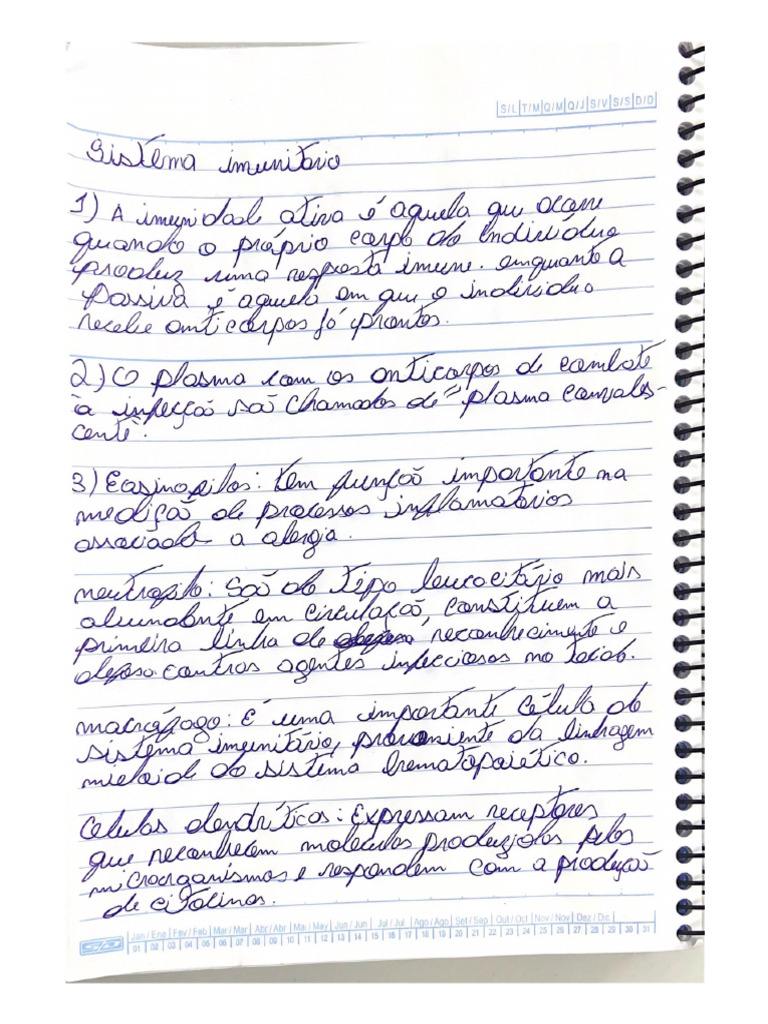 S/L T/M Q/M Q/J S/V S/S D/D
Sistema imunitário
1) A imunidade ativa é aquela que ocorre
quando o próprio corpo do indivíduo
produz uma resposta imune. enquanto a
Passiva é aquela em que o indivíduo
recebe anticorpos já prontos.
2) O plasma com os anticorpos de combate
à infecção são chamados de "plasma convales-
cente".
3) Eosinofilos: tem função importante na
medição de processos inflamatórios
associados a alergia.
neutrofilo: São do tipo leucocitário mais
abundante em circulação, constituem a
primeira linha de reconhecimento e
defesa contras agentes infecciosos no tecido.
macrófago: É uma importante célula do
sistema imunitário, proveniente da linhagem
mieloide do sistema hematopoiético.
Células dendríticas: Expressam receptores
que reconhecem moleculas produzidas pelos
microorganismos e respondem com a produção
de citocinas.
Jan/Ene Fev/Feb Mar/Mar Abr/Abr Mai/May Jun/Jun Jul/Jul Ago/Ago Set/Sep Out/Oct Nov/Nov Dez/Dic
01 02 03 04 05 06 07 08 09 10 11 12 13 14 15 16 17 18 19 20 21 22 23 24 25 26 27 28 29 30 31